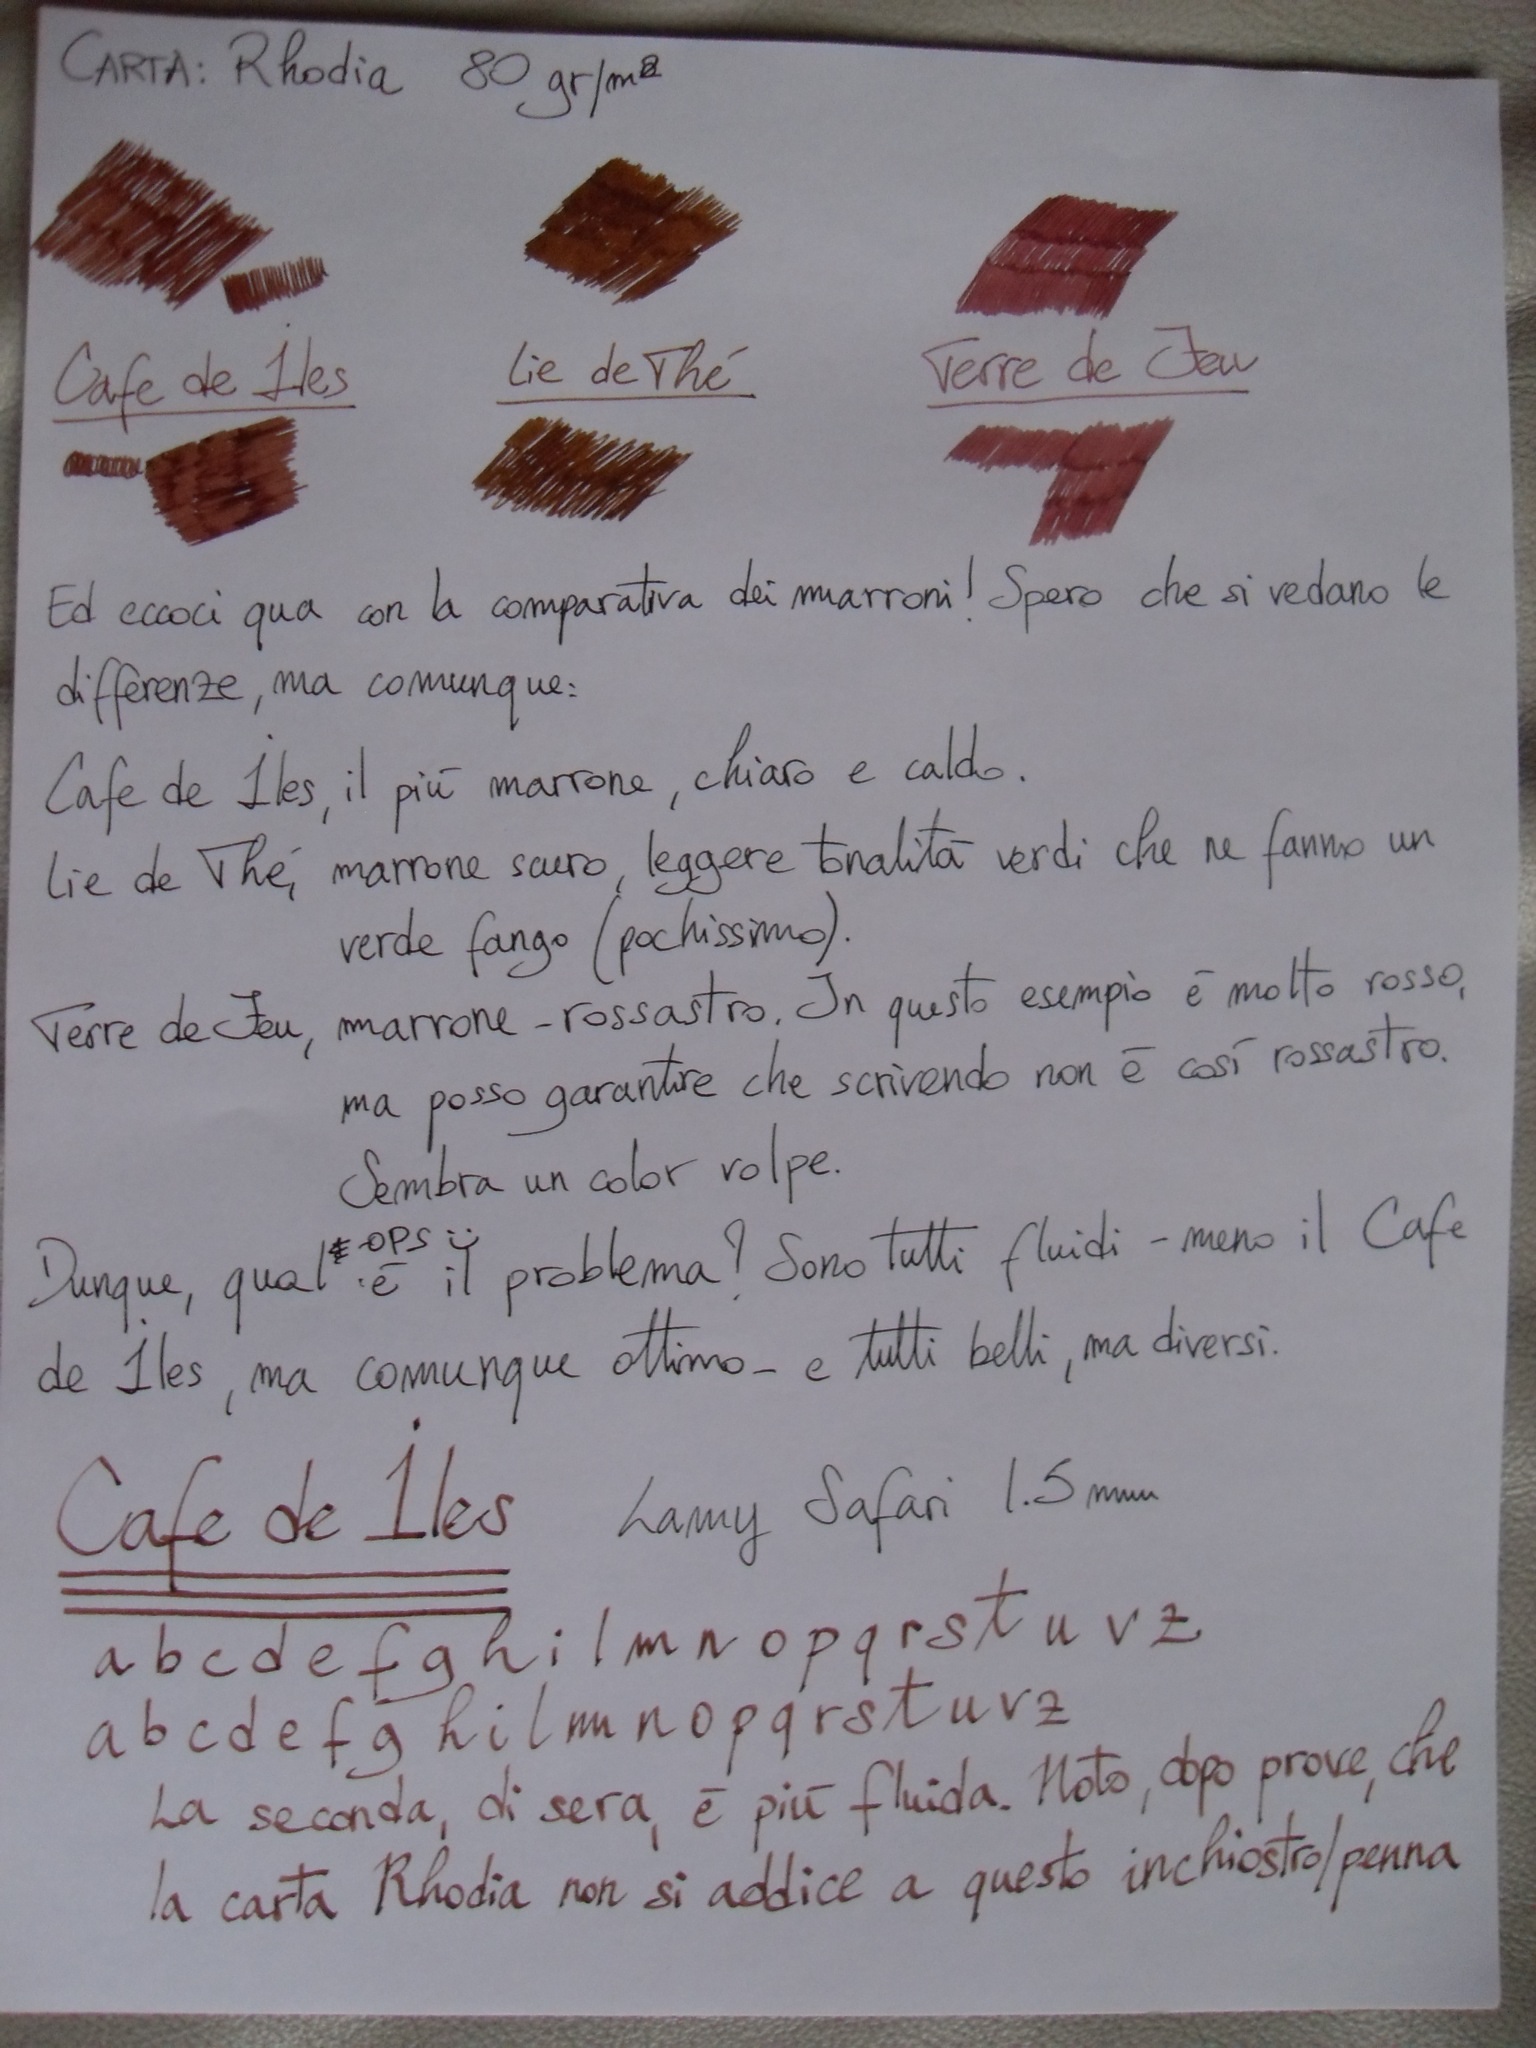 CARTA: Rhodia 80 gr/m²
Cafe de Iles Lie de Thé Terre de Feu
Ed eccoci qua con la comparativa dei marroni! Spero che si vedano le
differenze, ma comunque:
Cafe de Iles, il più marrone, chiaro e caldo.
Lie de Thé, marrone scuro, leggere tonalità verdi che ne fanno un
verde fango (pochissimo).
Terre de Feu, marrone-rossastro. In questo esempio è molto rosso,
ma posso garantire che scrivendo non è così rossastro.
Sembra un color volpe.
* OPS ü
Dunque, qual è il problema? Sono tutti fluidi - meno il Cafe
de Iles, ma comunque ottimo - e tutti belli, ma diversi.
Cafe de Iles Lamy Safari 1.5 mm
a b c d e f g h i l m n o p q r s t u v z
a b c d e f g h i l m n o p q r s t u v z
La seconda, di sera, è più fluida. Noto, dopo prove, che
la carta Rhodia non si addice a questo inchiostro/penna